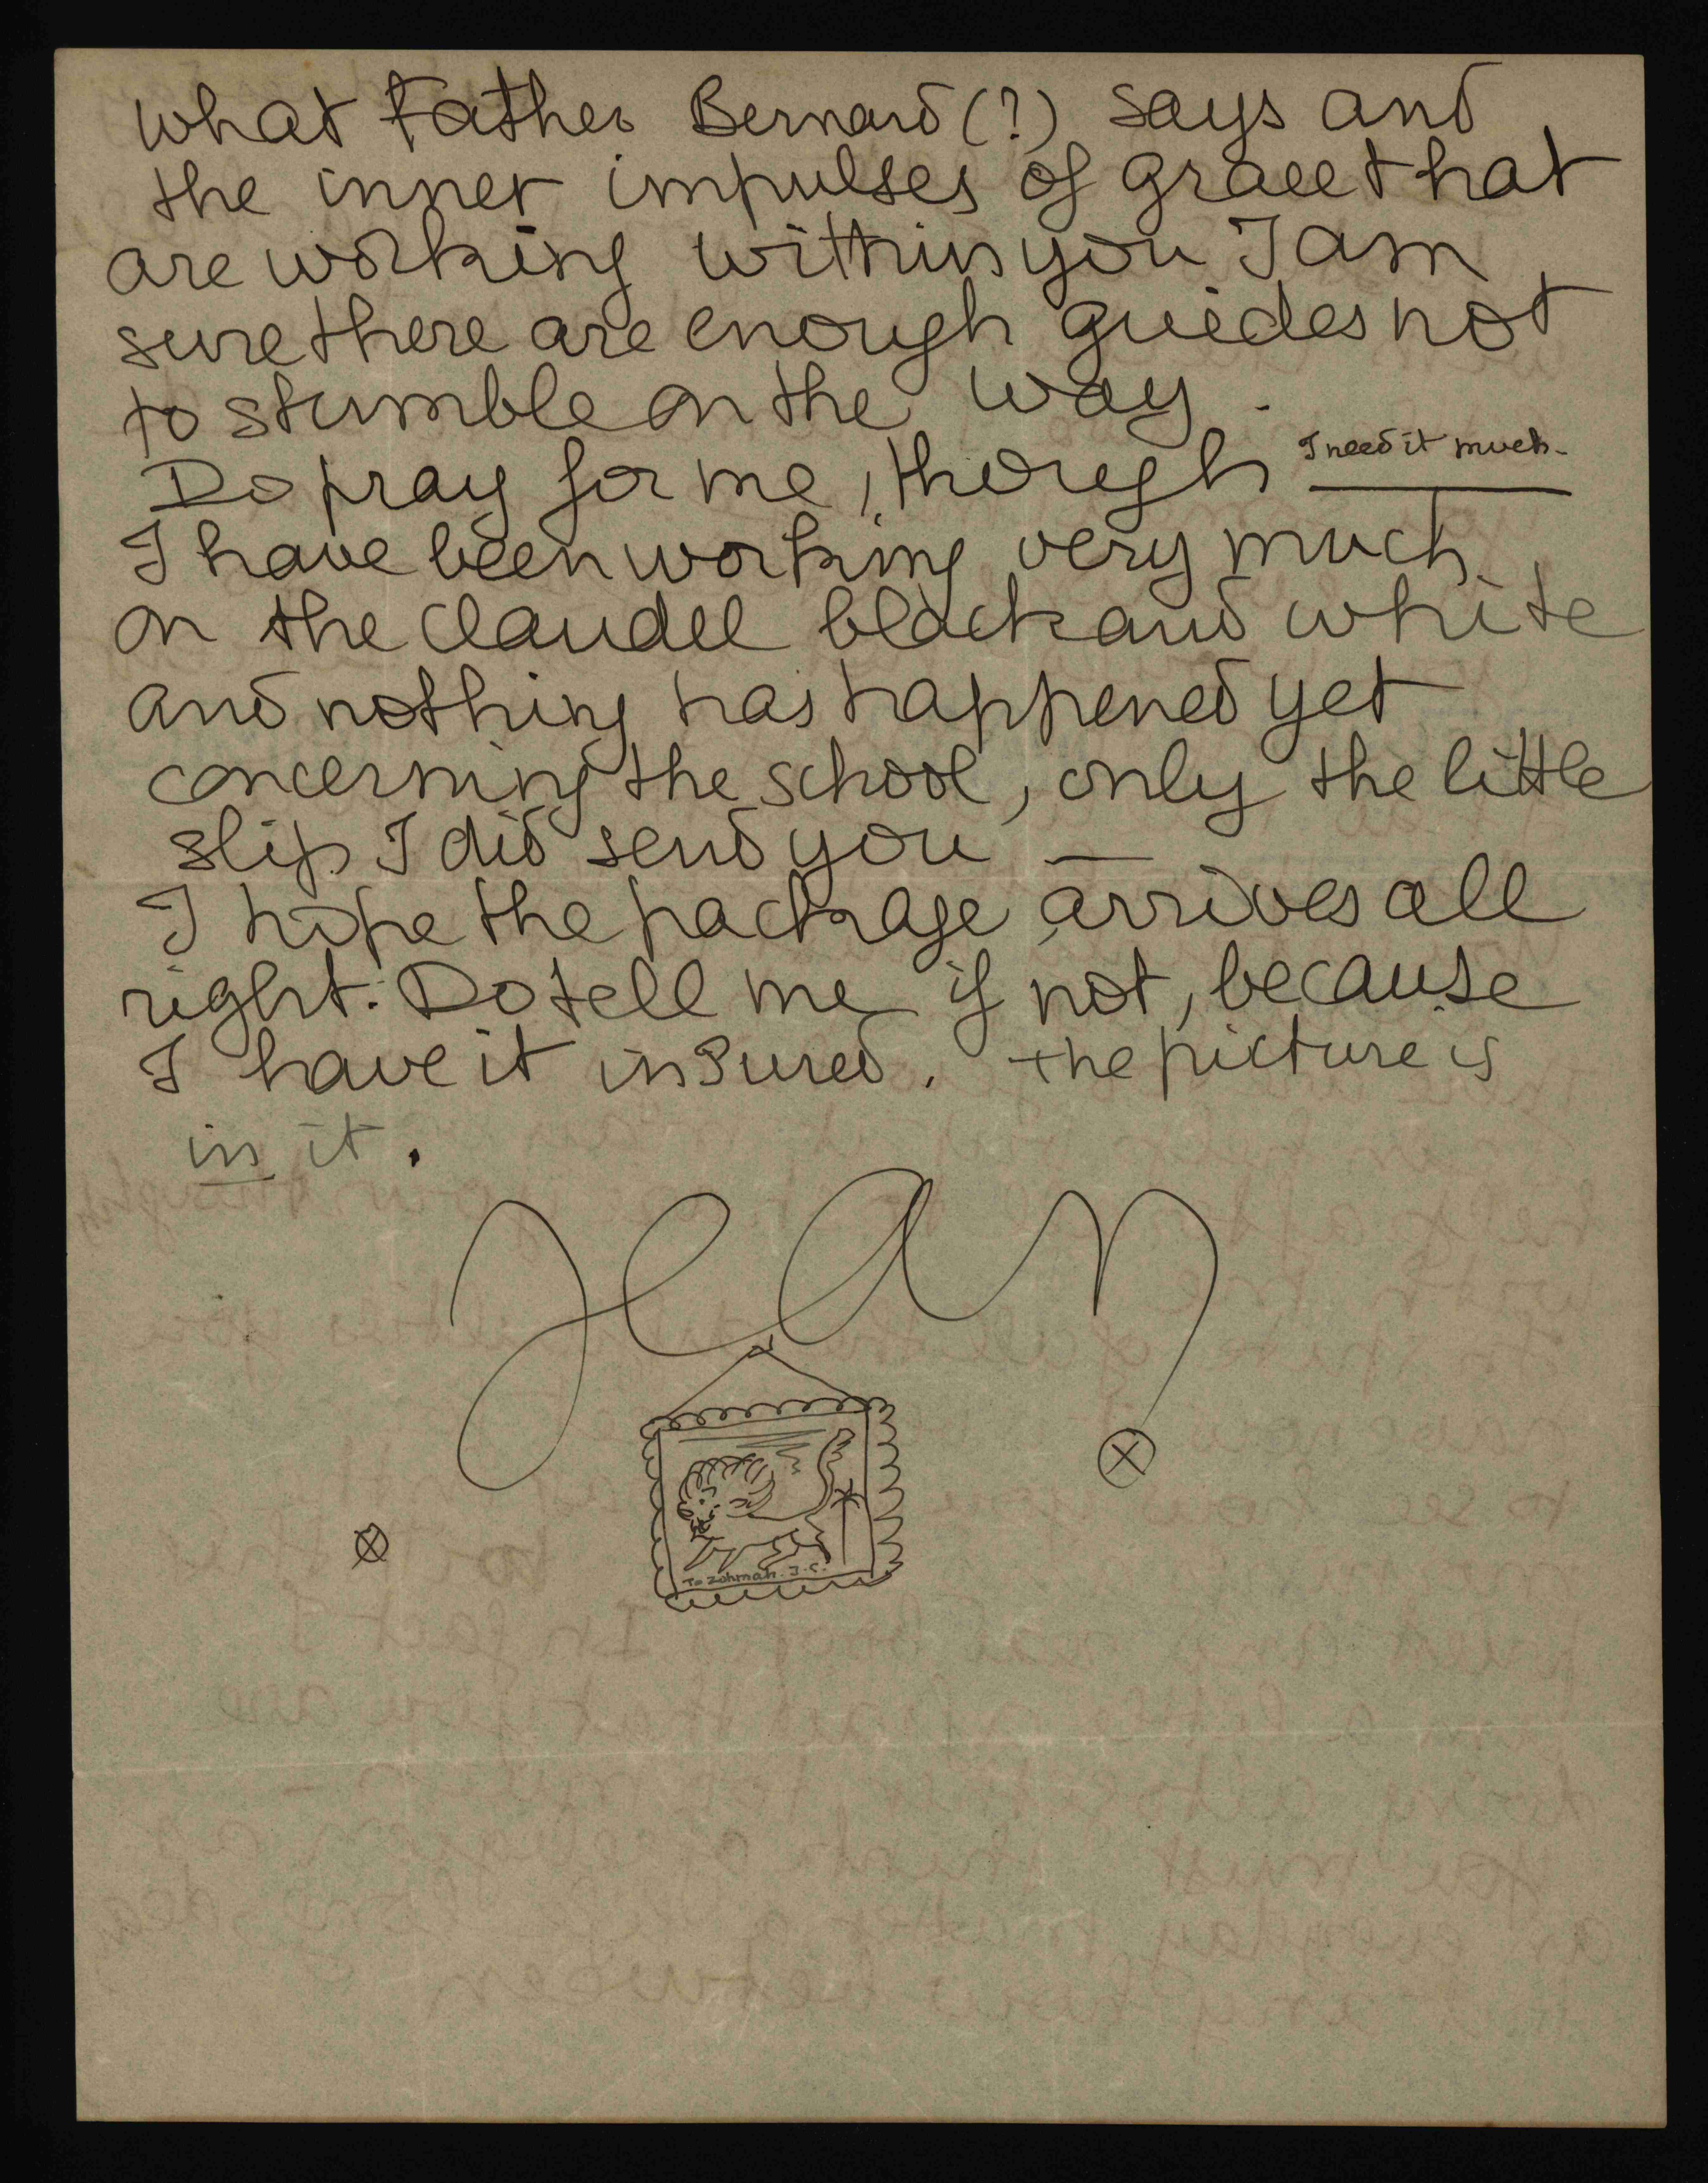 what Father Bernard (?) says and
the inner impulses of grace that
are working within you I am
sure there are enough guides not
to stumble on the way.
Do pray for me, though I need it much.
I have been working very much
on the Claudel black and white
and nothing has happened yet
concerning the school, only the little
slip I did send you —
I hope the package arrives all
right. Do tell me if not, because
I have it insured. The picture is
in it.
Jean
To Zohmah. J.C.